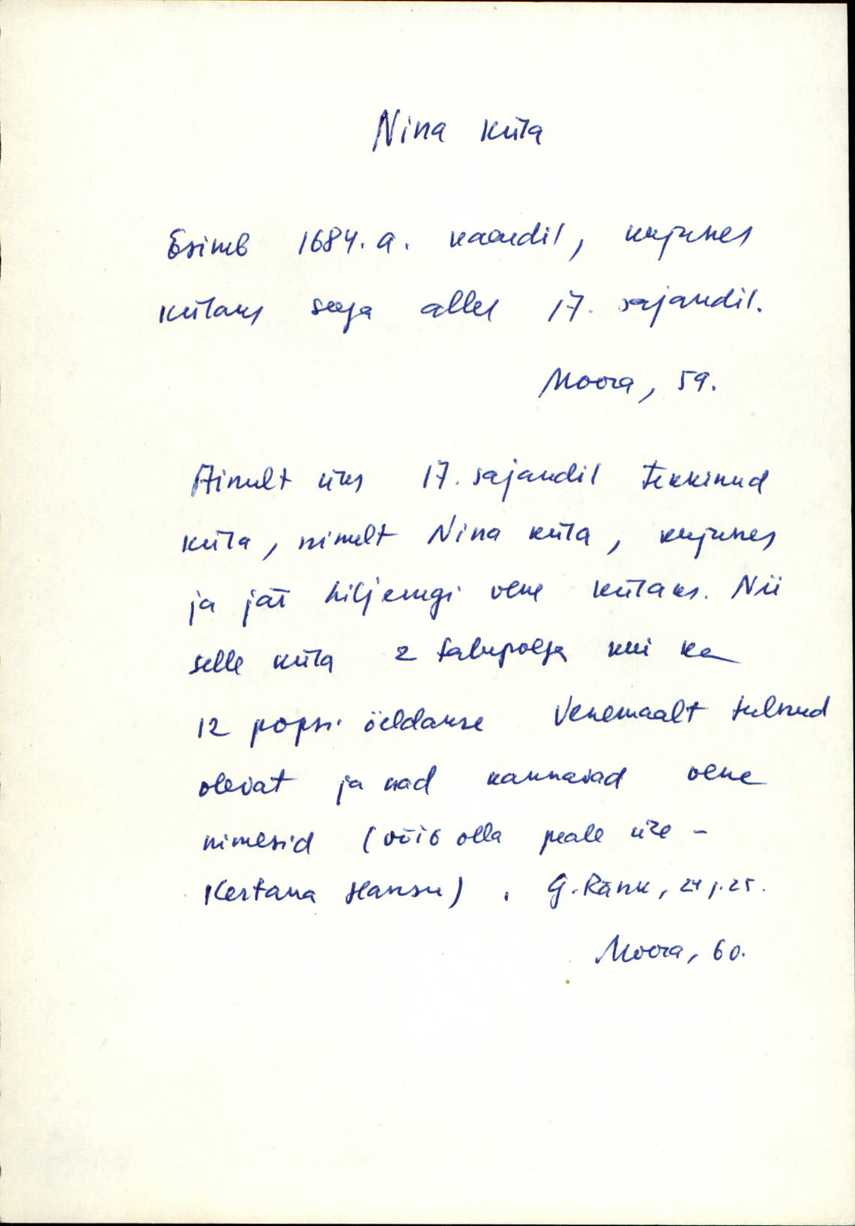 Nina küla
Esineb 1684. a. kaardil, kujunes
külaks seega alles 17. sajandil.
Moora, 59.
Ainult üks 17. sajandil tekkinud
küla, nimelt Nina küla, kujunes
ja jäi hiljemgi vene külaks. Nii
selle küla 2 talupoega kui ka
12 popsi öeldakse Venemaalt tulnud
olevat ja nad kannavad vene
nimesid (võib olla peale ühe -
Kertana Hansu). G. Ränk, 24 j. 25.
Moora, 60.